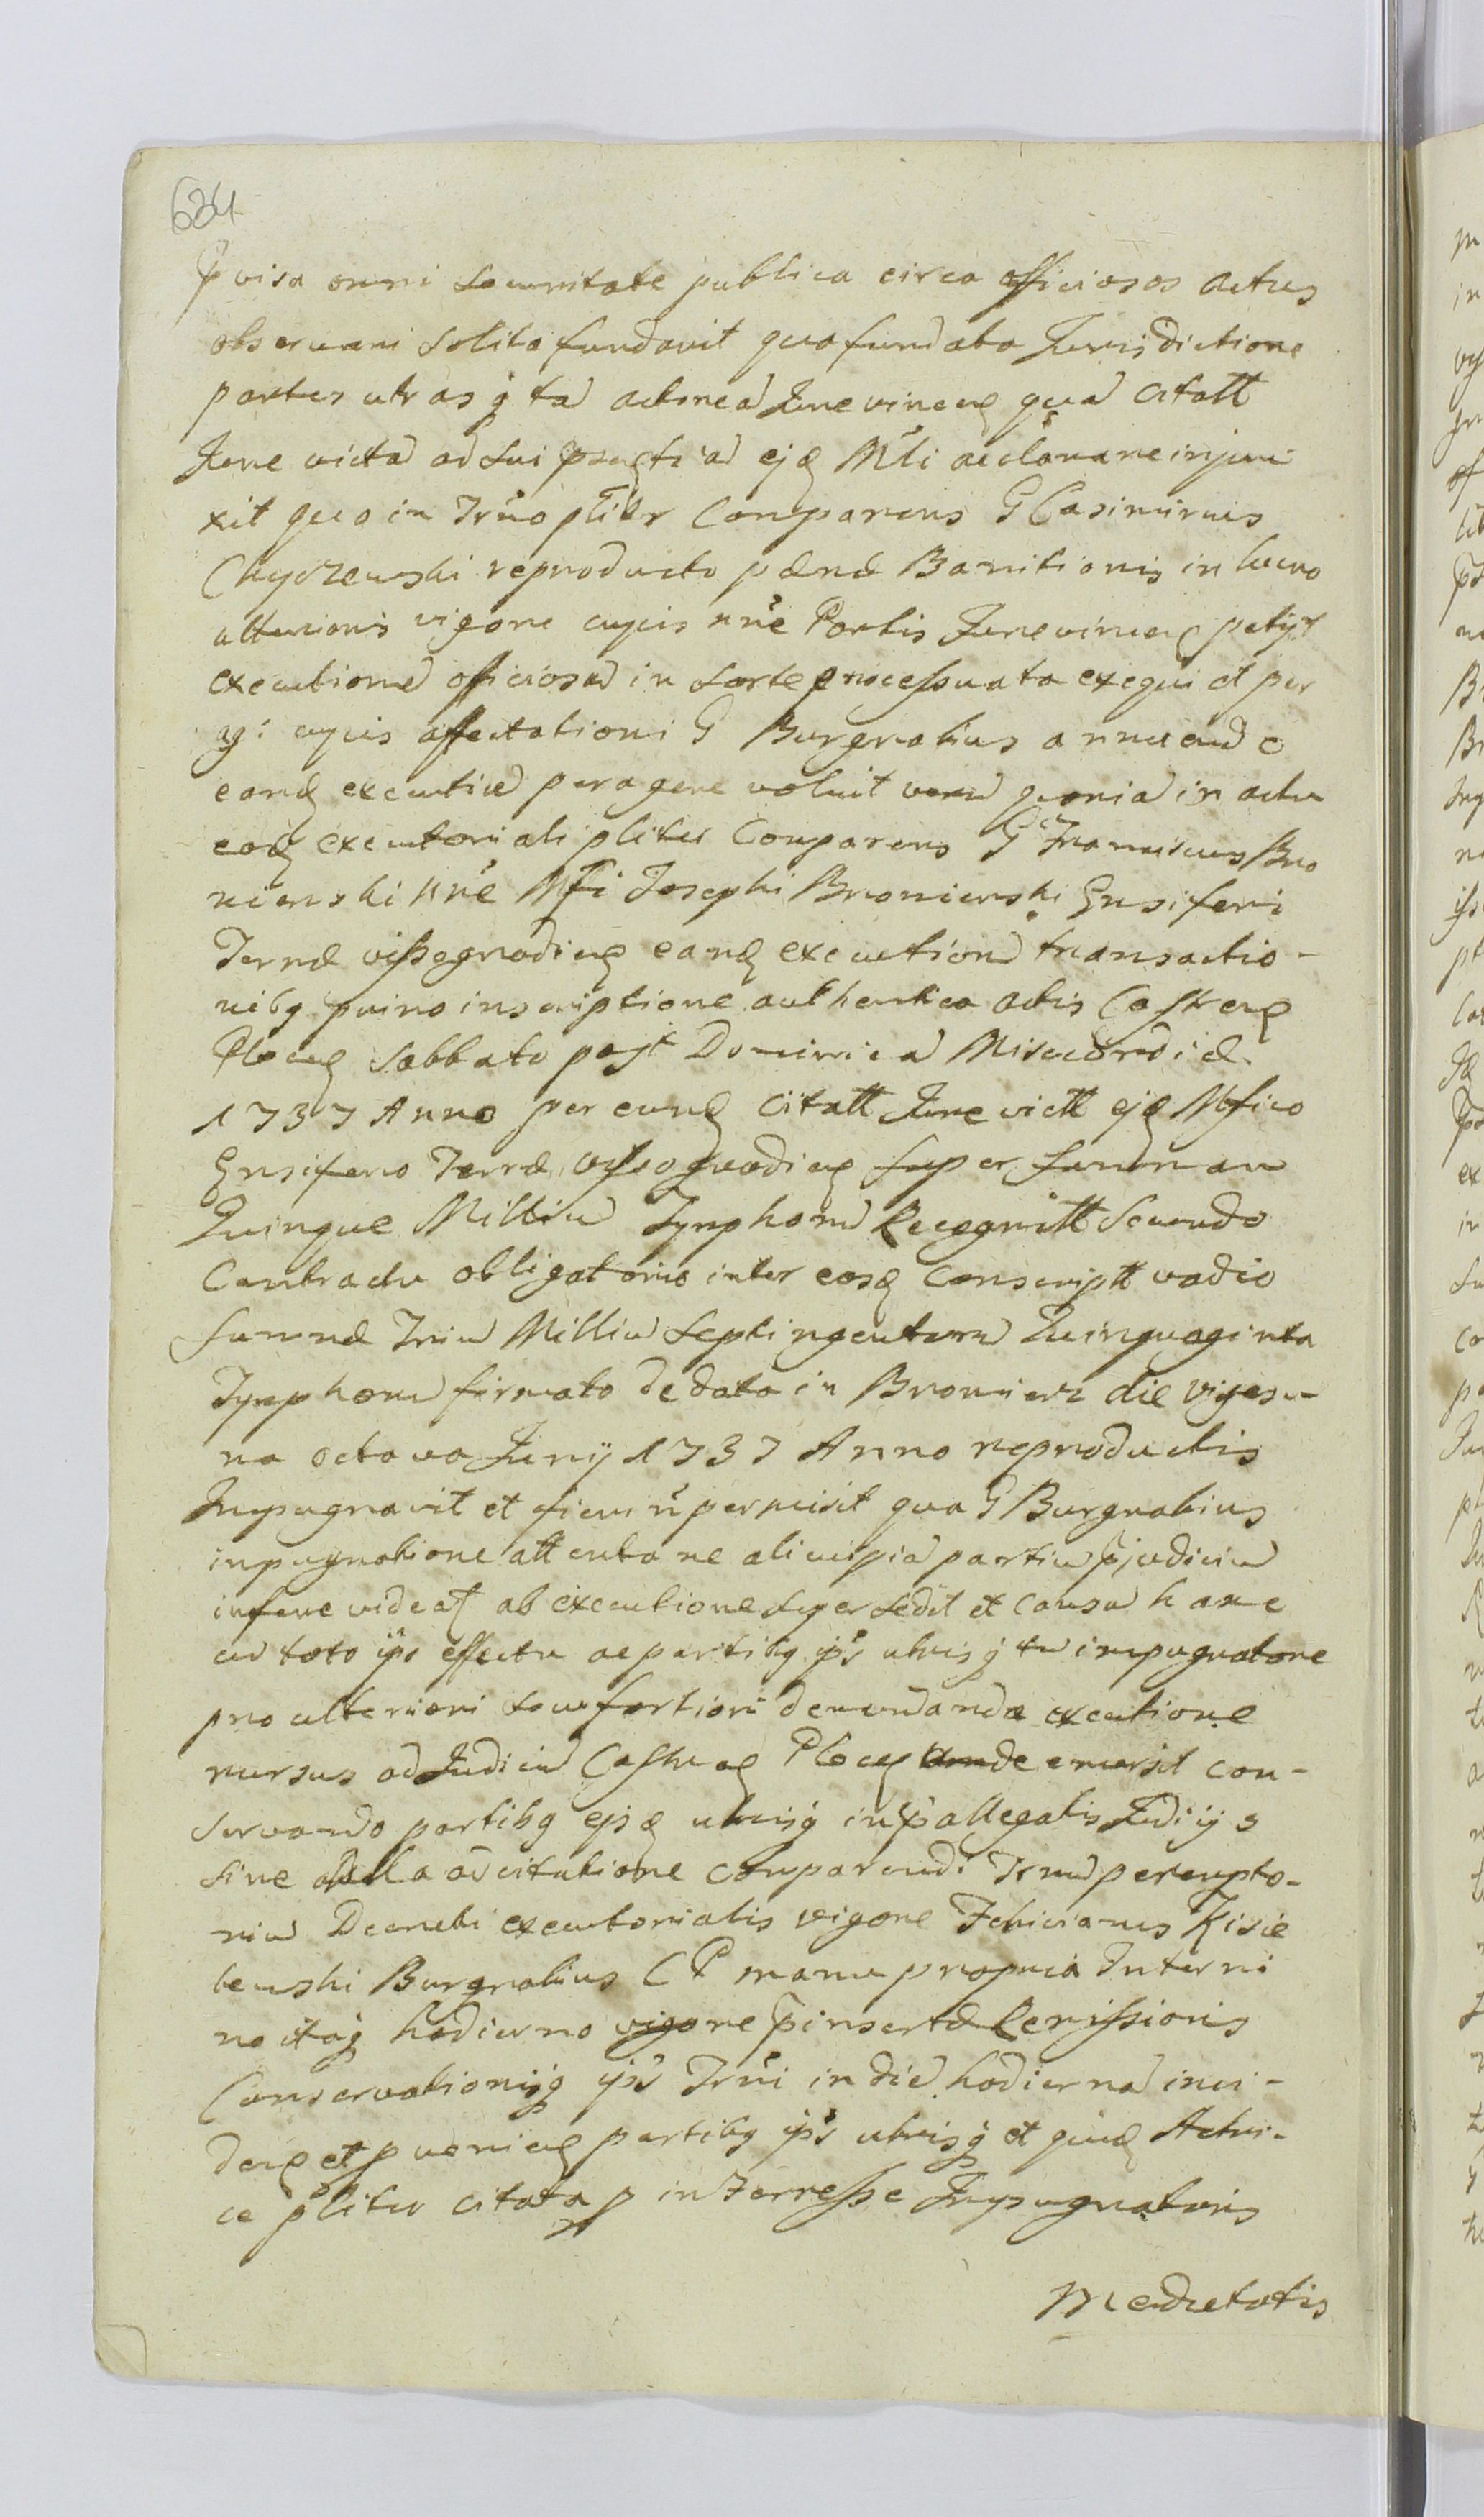 634
p̄visa omni Securitate publica circa officiosos actus
observari Solita fundavit qua fundata Jurisdictione
partes utrasq̨ ta actorea Jurevinceñ qua citatt
Jure victa ad Sui ejq Mĺi acclamare injun
xit quo in Trno pliter Comparens G Casimirus
Chyczewski reproducto pœnæ Bannitionis in lucro
ulterioris vigore cujus nne Partis Jurevinceñ petijt
executione officiosa in Sorte processuata exequi et per
agi cujus affectationi G Burgrabius annuendo
eand executiōe peragere voluit veru quonia in actu
eod executoriali pliter Comparens G Franciscus Bro
niewski nne Mfi Josephi Broniewski Ensiferi
Terræ vissegrodieñ eand execution transactio-
nibq primo inscriptione authentica actis Castreñ
Ploceñ Sabbato post Dominica Misericordiæ
1737 Anno per eund Citatt Jure victt ejq Mfico
Ensifero Terræ vissogrodieñ super Summam
Quinque Milliu Tynphoru Recognitt Secundo
Contractu obligatorio inter eosd Conscriptt vadio
Summæ Triu Milliu Septingentoru Quinquaginta
Tynphoru firmato de data in Bromierz die viges-
ma octava Junij 1737 Anno reproductis
Impugnavit et fieri n̄ permisit qua G Burgrabius
inpugnatione attenta ne alicuipia partiu p̄judiciu
inferre videat ab executione Supersedit et Causa hanc
cu toto ips effectu ac partibq ips utrisq̨ tu impugnatore
pro ulteriori Seu fortiori demandanda executione
rursus ad Judiciu Castreñ Ploceñ unde emersit con-
servando partibq ejsq utrisq̨ in p̄allegatis Judiijs
sine ulla adcitatione Comparendi Trnu perempto-
riu Decreti executorialis vigore Felicianus Kisie
lewski Burgrabius CP manu propria In termi
no itaq̨ hodierno vigore p̄insertæ Remissionis
Conservationisq̨ ips Trni in die hodierna inci-
deñ et p̄venieñ partibq ips utrisq̨ et quid Actri-
ce pliter citata p interresse Impugnatoris
Medietatis